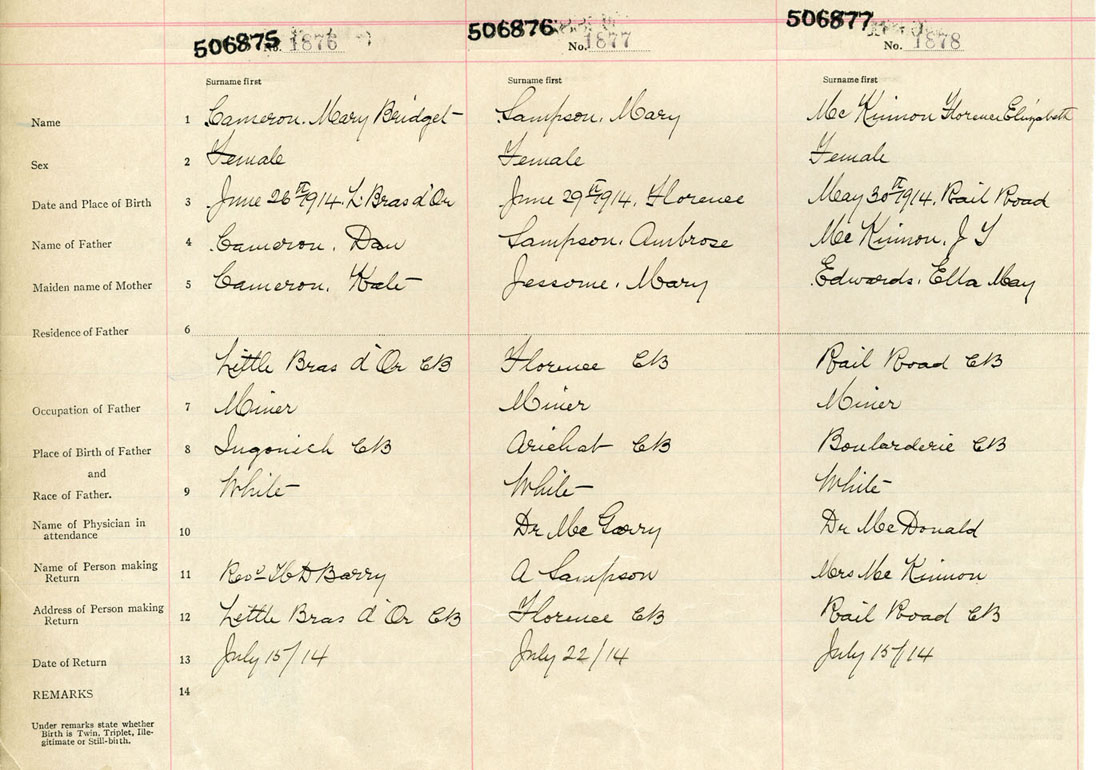 506875 No. 1876 506876 No. 1877 506877 No. 1878
Surname first Surname first Surname first
Name 1 Cameron, Mary Bridget Sampson, Mary Mc Kinnon Florence Elizabeth
Sex 2 Female Female Female
Date and Place of Birth 3 June 26th 1914. L Bras d'Or June 29th 1914. Florence May 30th 1914. Rail Road
Name of Father 4 Cameron, Dan Sampson, Ambrose Mc Kinnon, J
Maiden name of Mother 5 Cameron, Kate Jessome, Mary Edwards, Ella May
Residence of Father 6
Little Bras d'Or CB Florence CB Rail Road CB
Occupation of Father 7 Miner Miner Miner
Place of Birth of Father 8 Ingonich CB Arichat CB Boularderie CB
and
Race of Father. 9 White White White
Name of Physician in attendance 10 Dr Mc Garry Dr McDonald
Name of Person making Return 11 Revd H D Barry A Sampson Mrs Mc Kinnon
Address of Person making Return 12 Little Bras d'Or CB Florence CB Rail Road CB
Date of Return 13 July 15/14 July 22/14 July 15/14
REMARKS 14
Under remarks state whether
Birth is Twin, Triplet, Ille-
gitimate or Still-birth.